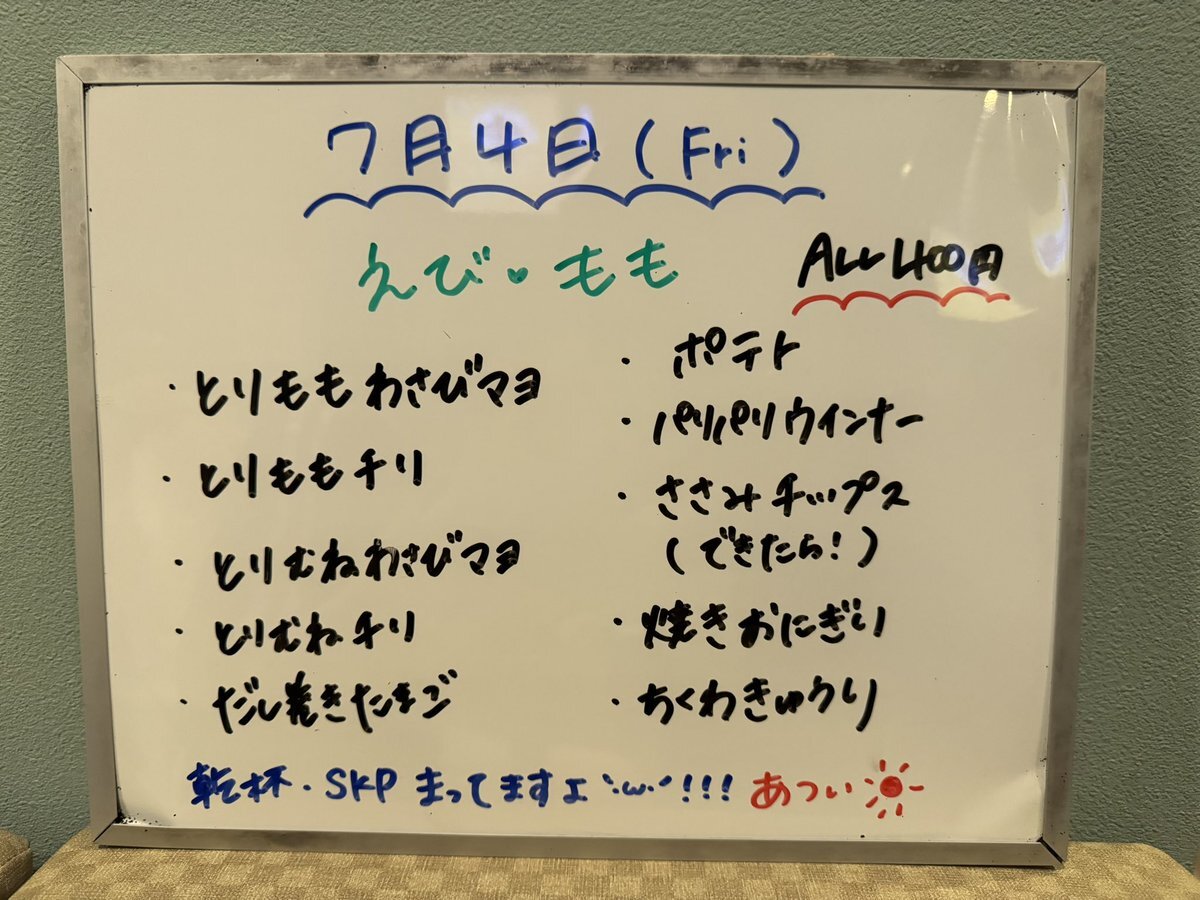 7月4日(Fri)
えび♥もも
ALL 400円
・とりももわさびマヨ
・とりももチリ
・とりむねわさびマヨ
・とりむねチリ
・だし巻きたまご
・ポテト
・パリパリウインナー
・ささみチップス
(できたら!)
・焼きおにぎり
・ちくわきゅうり
乾杯・SKPまってますよ`・ω・´!!! あつい